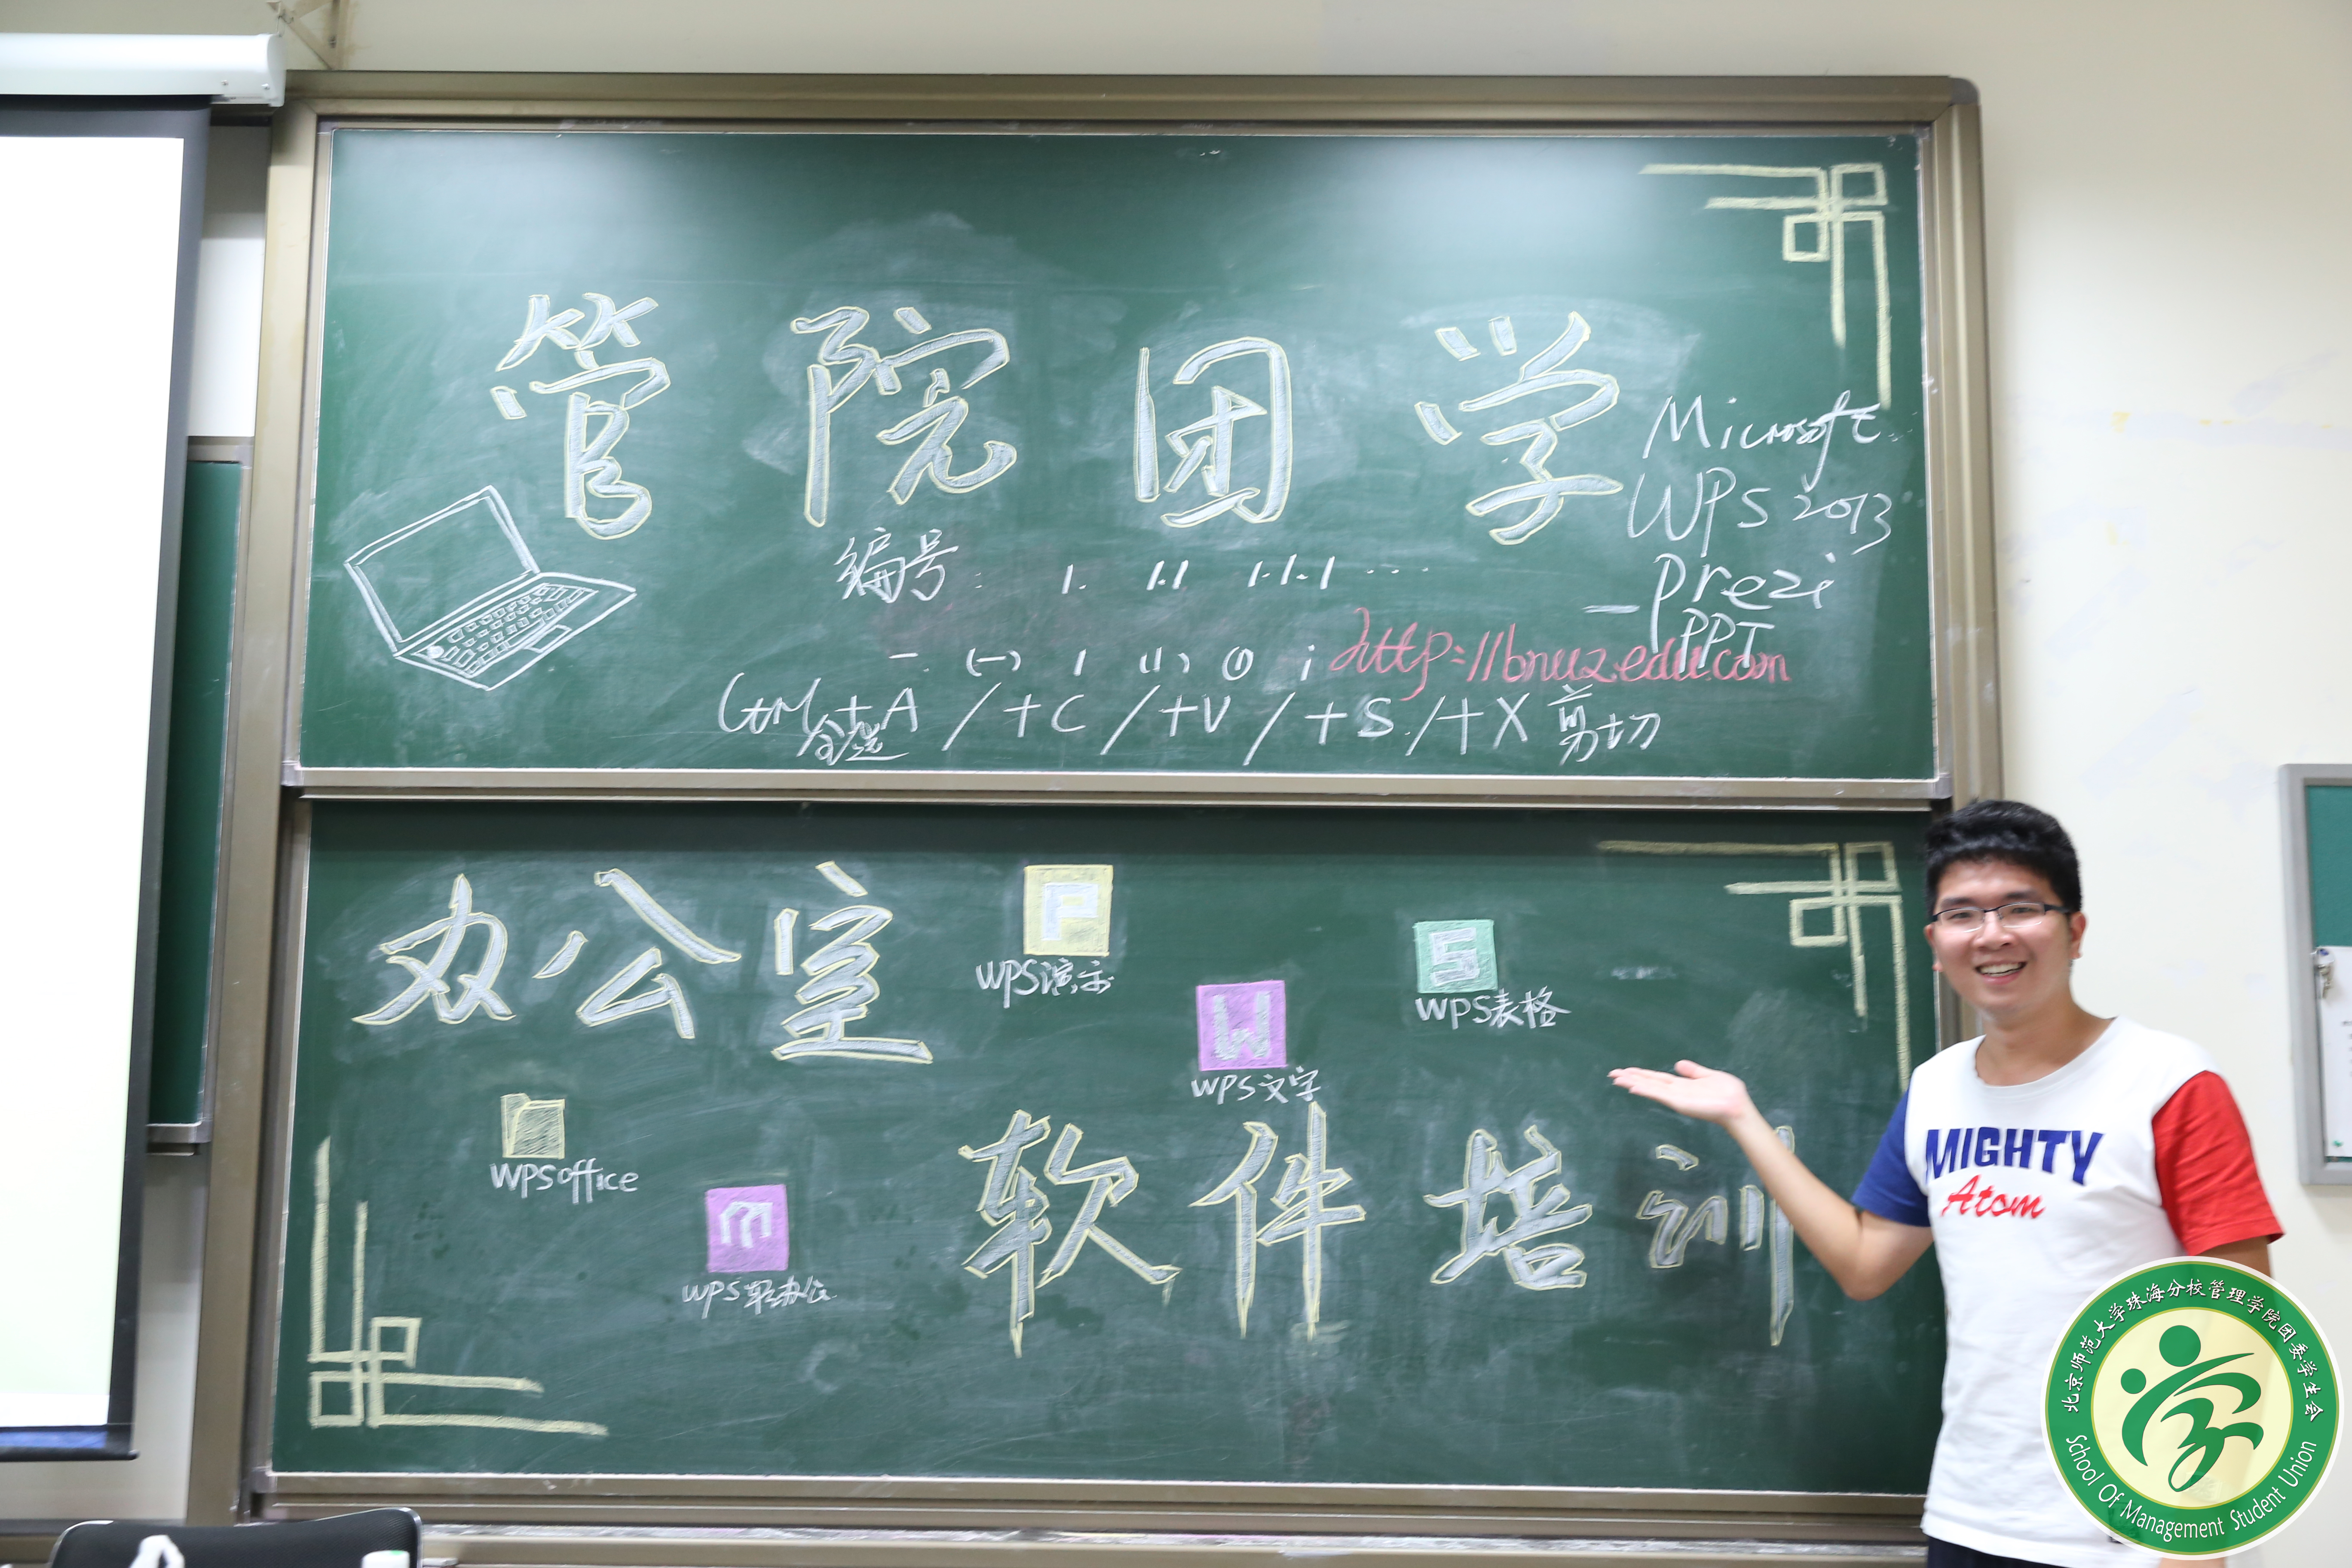 管院团学
Microsoft
WPS 2013
编号: 1. 1.1 1.1.1 ...
—prezi
PPT
一. (一) 1 (1) ① ;
http://bnuz.edu.com
Ctrl+A / +C / +V / +S / +X 剪切
全选
办公室
P
WPS演示
S
WPS表格
W
WPS文字
WPS office
m
WPS轻办公
软件培训
MIGHTY
Atom
北京师范大学珠海分校管理学院团委学生会
School Of Management Student Union